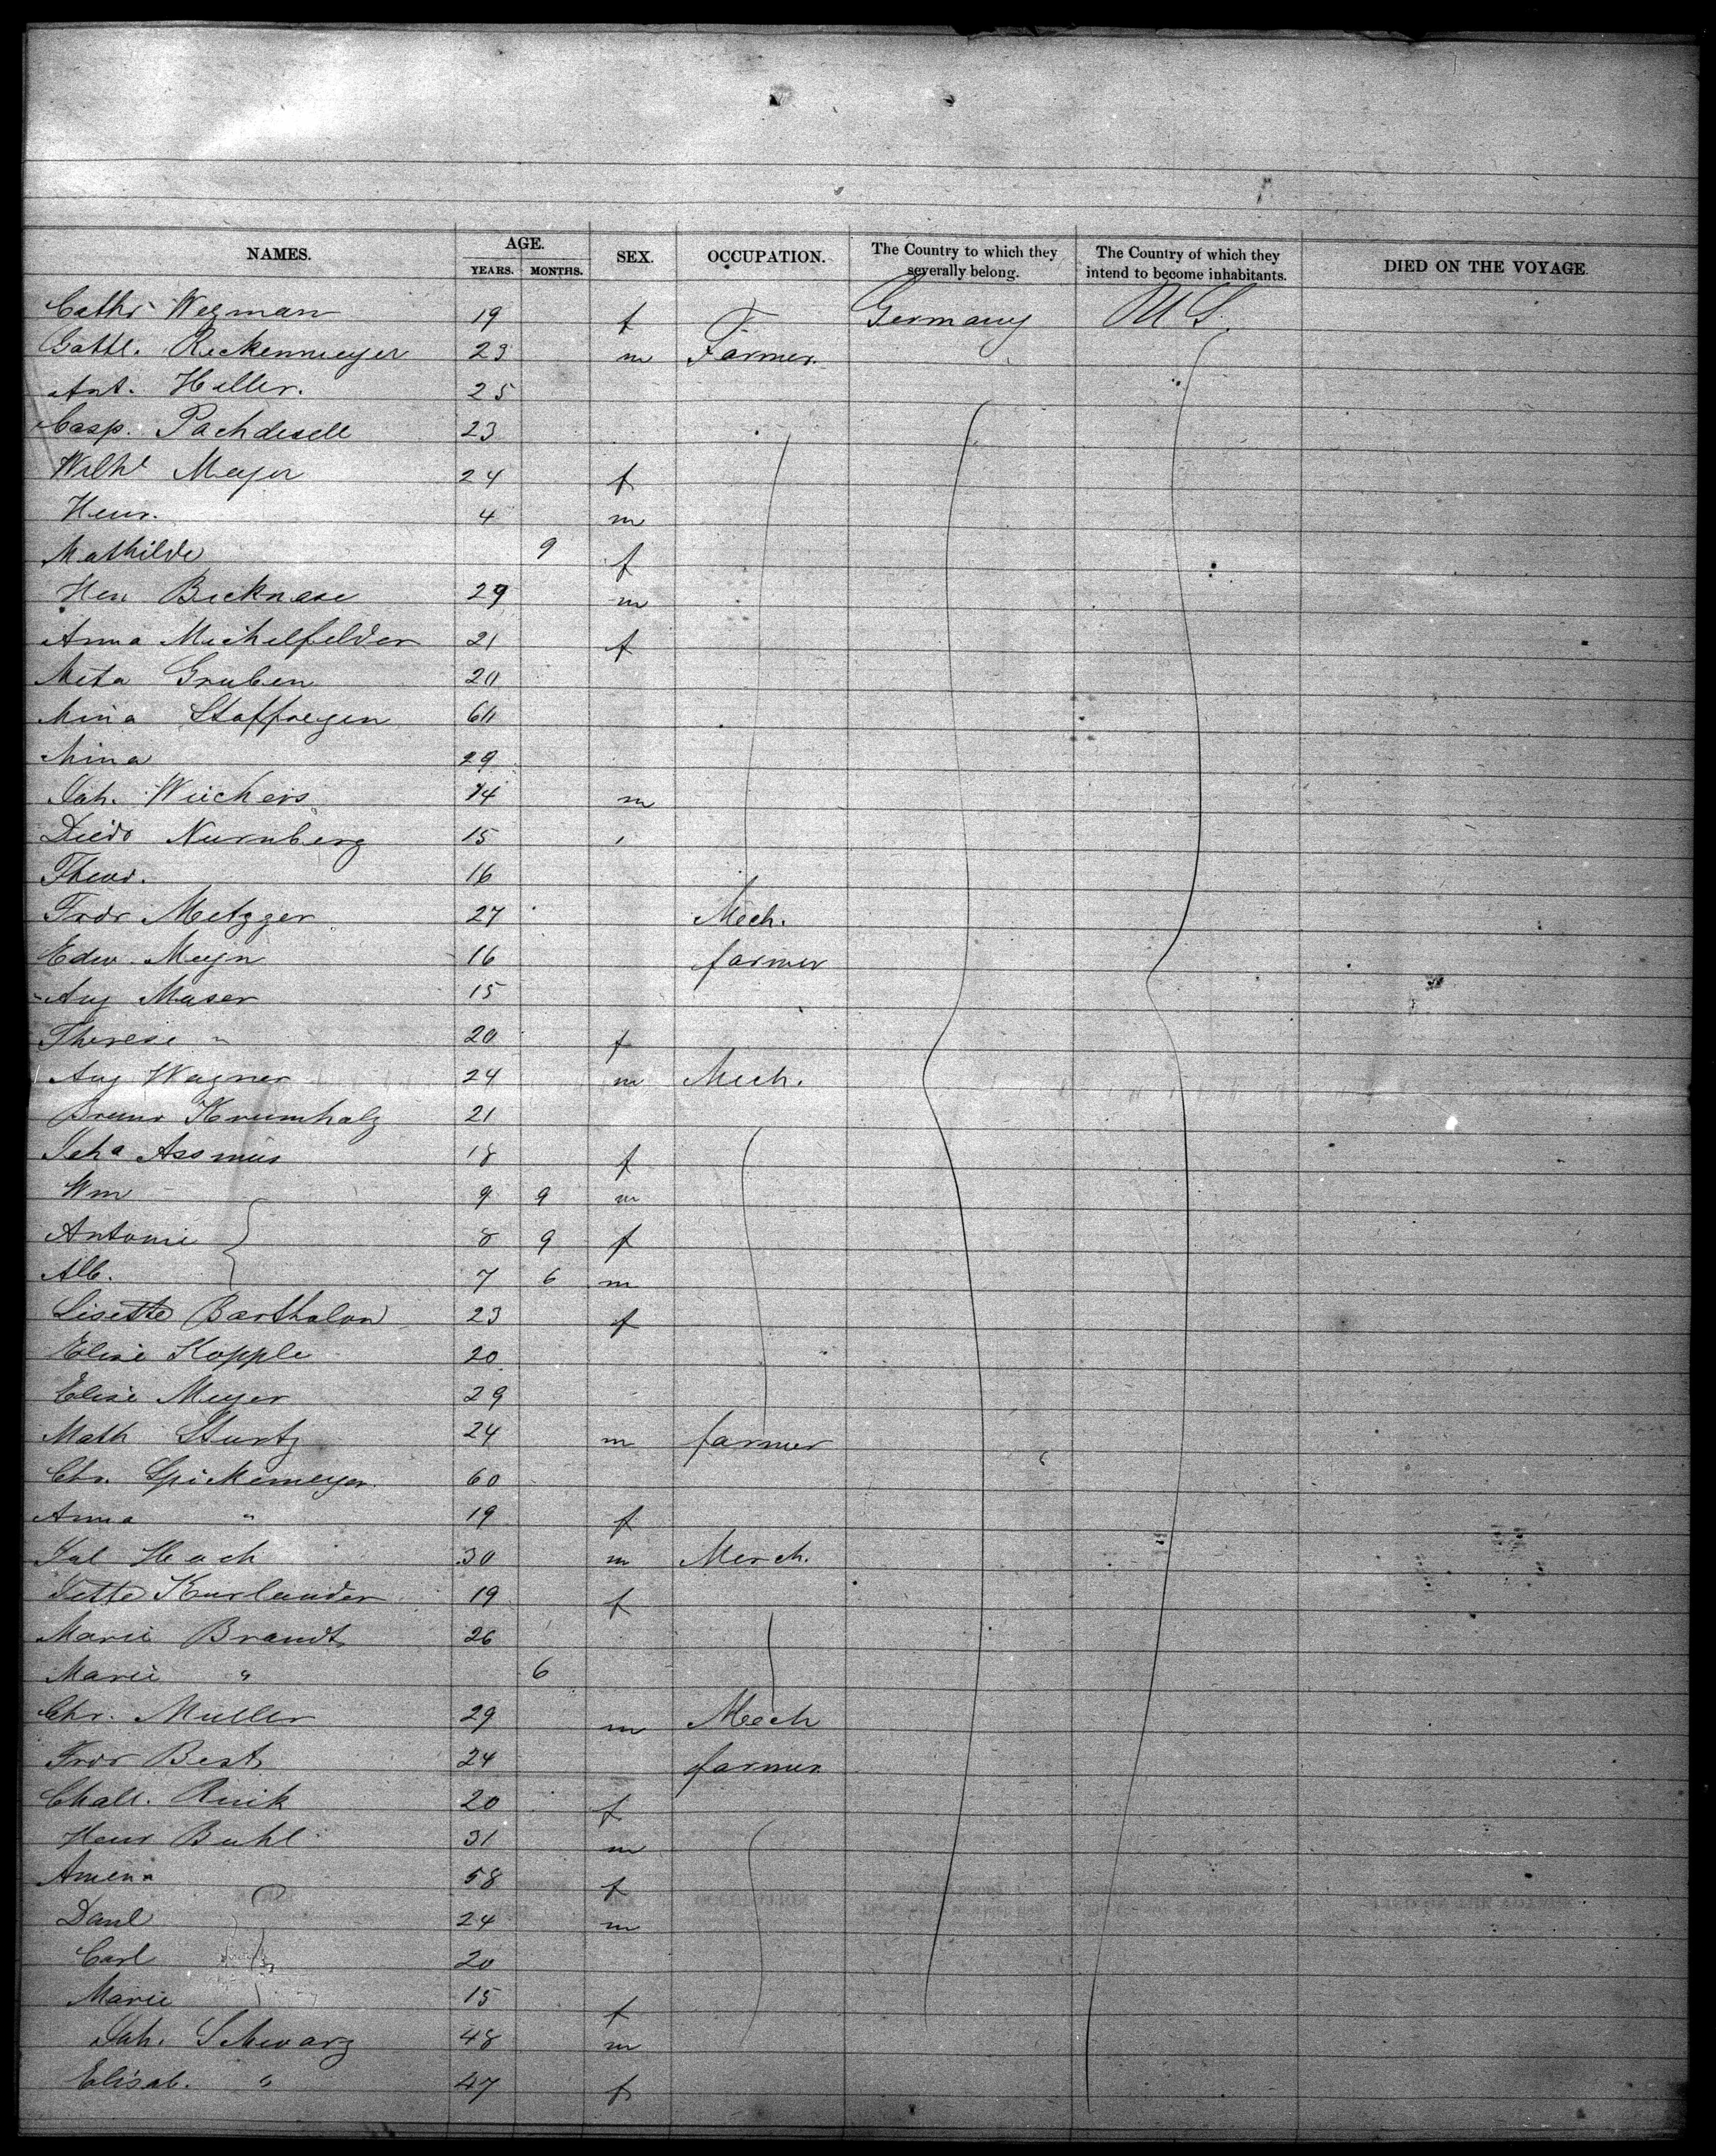 NAMES. AGE. YEARS. MONTHS. SEX. OCCUPATION. The Country to which they severally belong. The Country of which they intend to become inhabitants. DIED ON THE VOYAGE.
Cathr Wegman 19 f Germany U S.
Gottl. Reckenmeyer 23 m Farmer.
Ant. Heller. 25
Casp. Pachdesell 23
Wilhe Meyer 24 f
Henr. 4 m
Mathilde 9 f
Hen Bicknase 29 m
Anna Michelfelder 21 f
Meta Gruben 20
Mina Staffregen 60
Mina 29
Joh. Wiechers 14 m
Diedr Nurnberg 15
Theod. 16
Fredr Metzger 27 Mech.
Edw. Meyn 16 farmer
Aug Maser 15
Therese " 20 f
Aug Wagner 24 m Mech.
Bruno Krumholz 21
Joha Assmus 18 f
Wm 9 9 m
Antonie 8 9 f
Alb. 7 6 m
Lisette Barthalon 23 f
Elise Kopple 20
Elise Meyer 29
Math Sturtz 24 m farmer
Chr. Spickemeyer. 60
Anna " 19 f
Jul Hach 30 m Merch.
Jette Kurlander 19 f
Marie Brandt 26
Marie " 6
Chr. Muller 29 m Mech
Fredr Best 24 farmer
Chall. Rink 20 f
Henr Buhl 31 m
Amena 58 f
Danl 24 m
Carl 20
Marie 15 f
Joh. Schwarz 48 m
Elisab. " 47 f